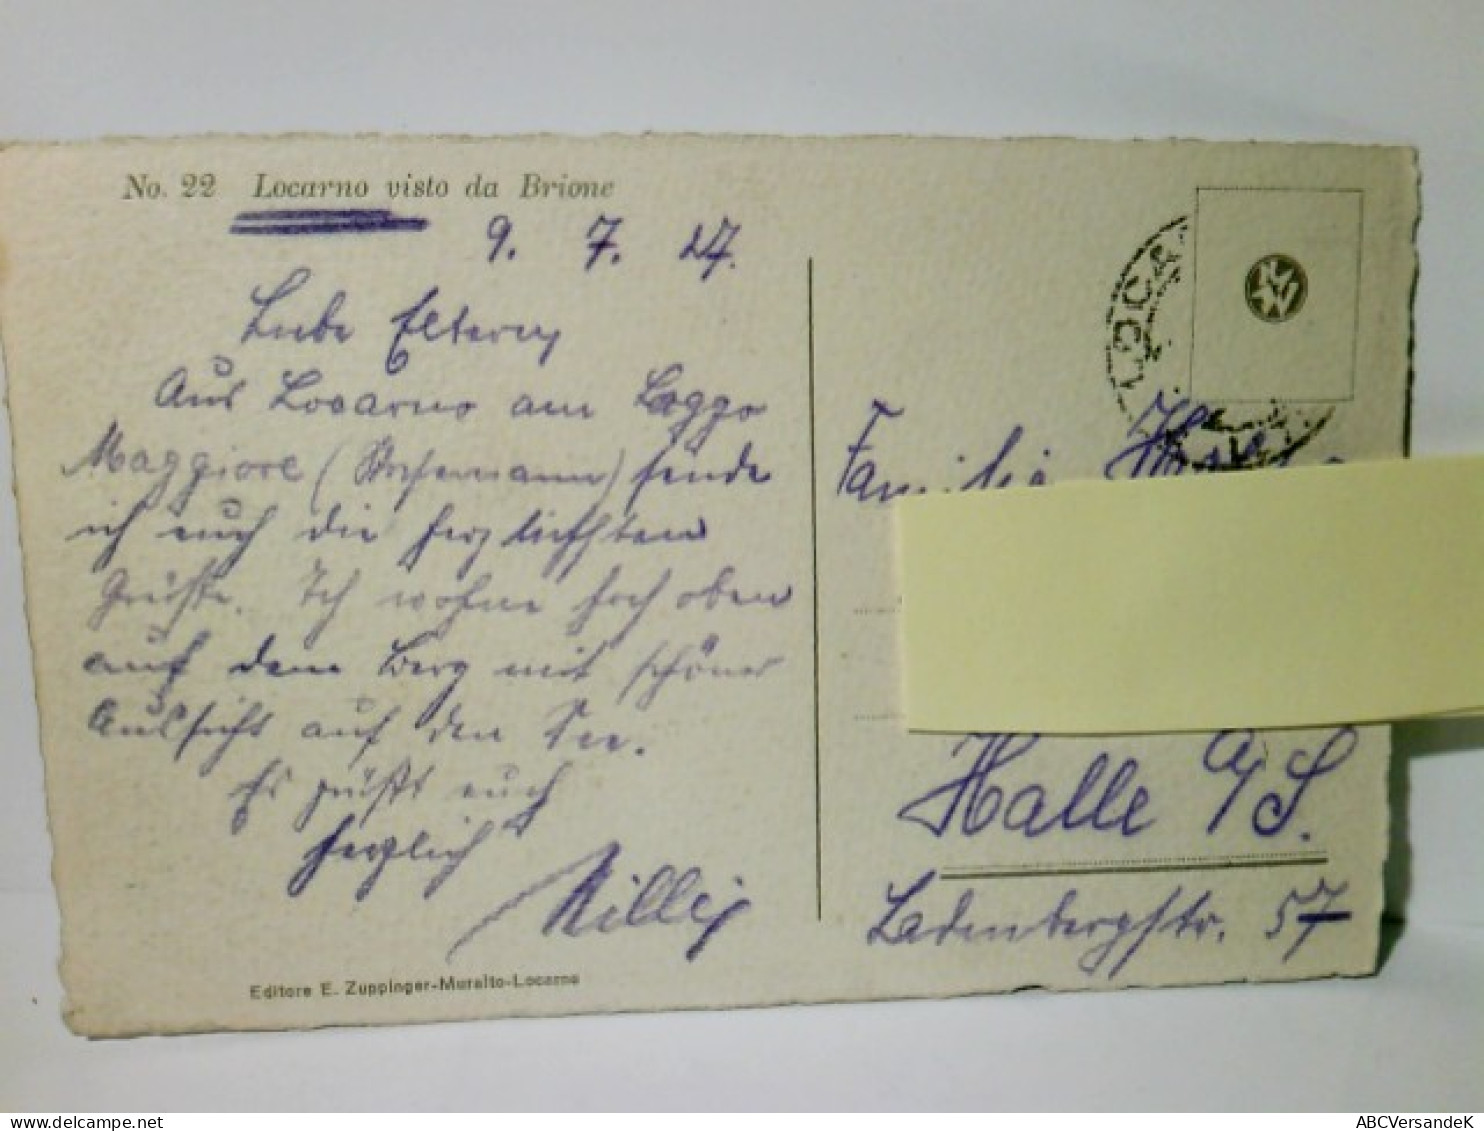 No. 22 Locarno visto da Brione
9. 7. 27.
Liebe Eltern,
Aus Locarno am Laggo
Maggiore ( ) sende
ich euch die herzlichsten
Grüße. Ich wohne hoch oben
auf dem Berg mit schöner
Aussicht auf den See.
Es grüßt euch
herzlich
Willy
Editore E. Zuppinger-Muralto-Locarno
LOCA
Familie
Halle a/S.
Ladenbergstr. 57
ABCVersandeK
www.delcampe.net